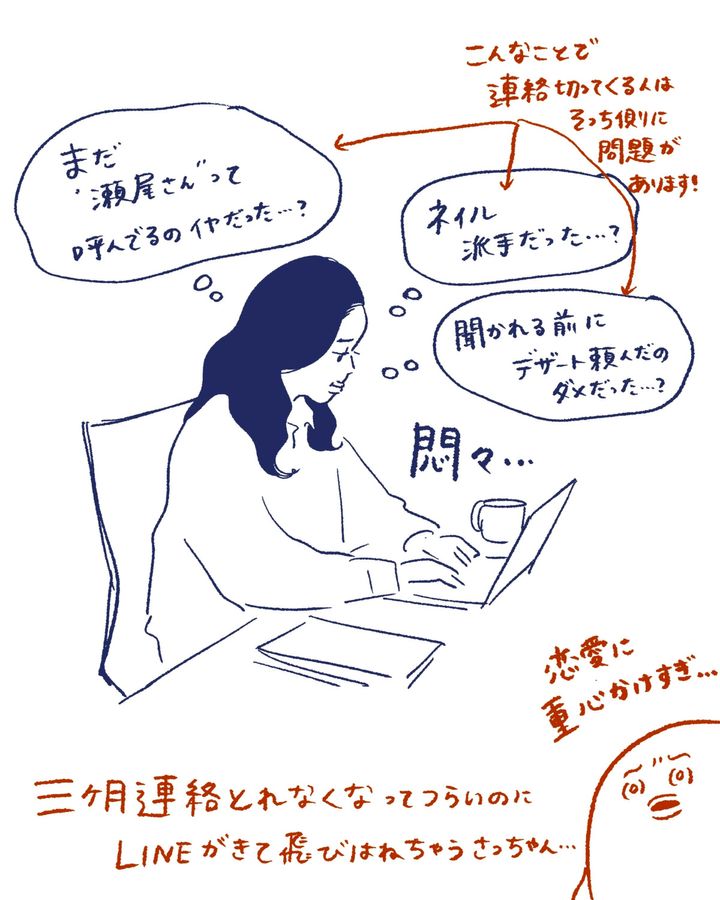 こんなことで
連絡切ってくる人は
そっち側りに
問題が
あります!
まだ
"瀬尾さん"って
呼んでるのイヤだった…?
ネイル
派手だった…?
聞かれる前に
デザート頼んだの
ダメだった…?
悶々…
恋愛に
重心かけすぎ…
三ヶ月連絡とれなくなってつらいのに
LINEがきて飛びはねちゃうさっちゃん…